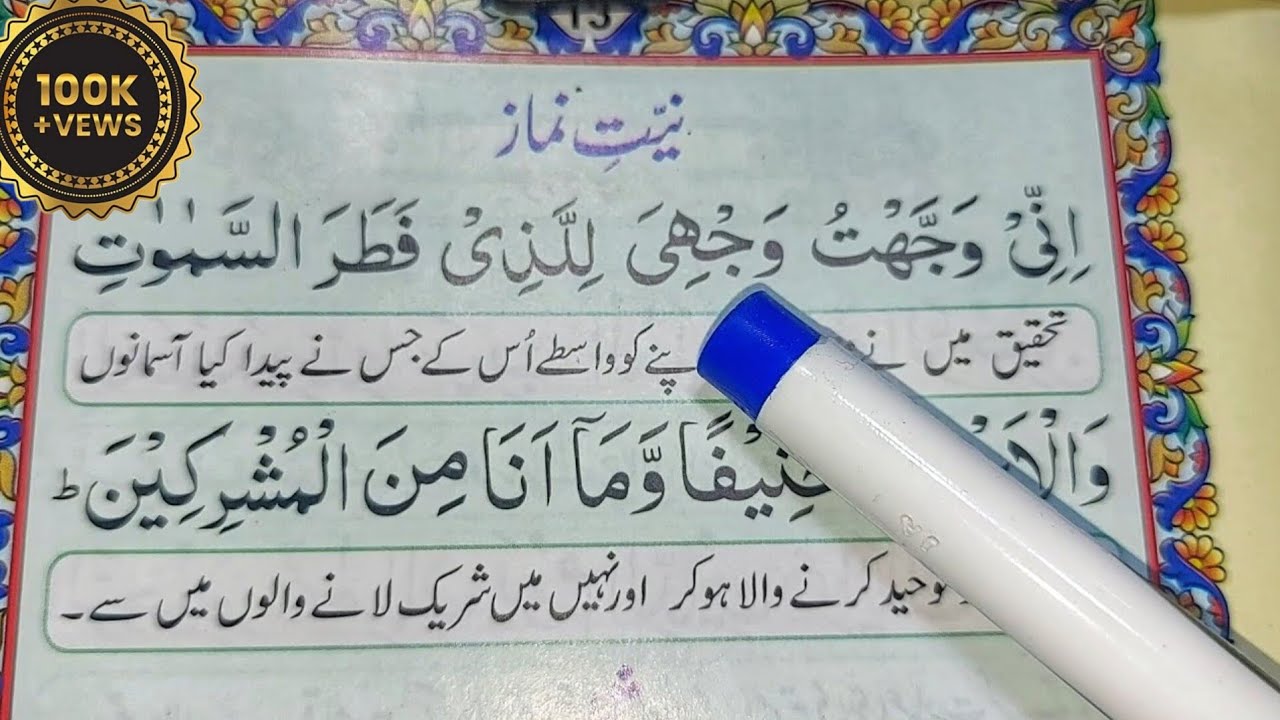 100K
+VEWS
13
نیّتِ نماز
اِنِّیْ وَجَّهْتُ وَجْهِیَ لِلَّذِیْ فَطَرَ السَّمٰوٰتِ
تحقیق میں نے پنے کو واسطے اُس کے جس نے پیدا کیا آسمانوں
وَالْاَرْ حَنِیْفًا وَّمَآ اَنَا مِنَ الْمُشْرِکِیْنَ ط
توحید کرنے والا ہو کر اور نہیں میں شریک لانے والوں میں سے۔